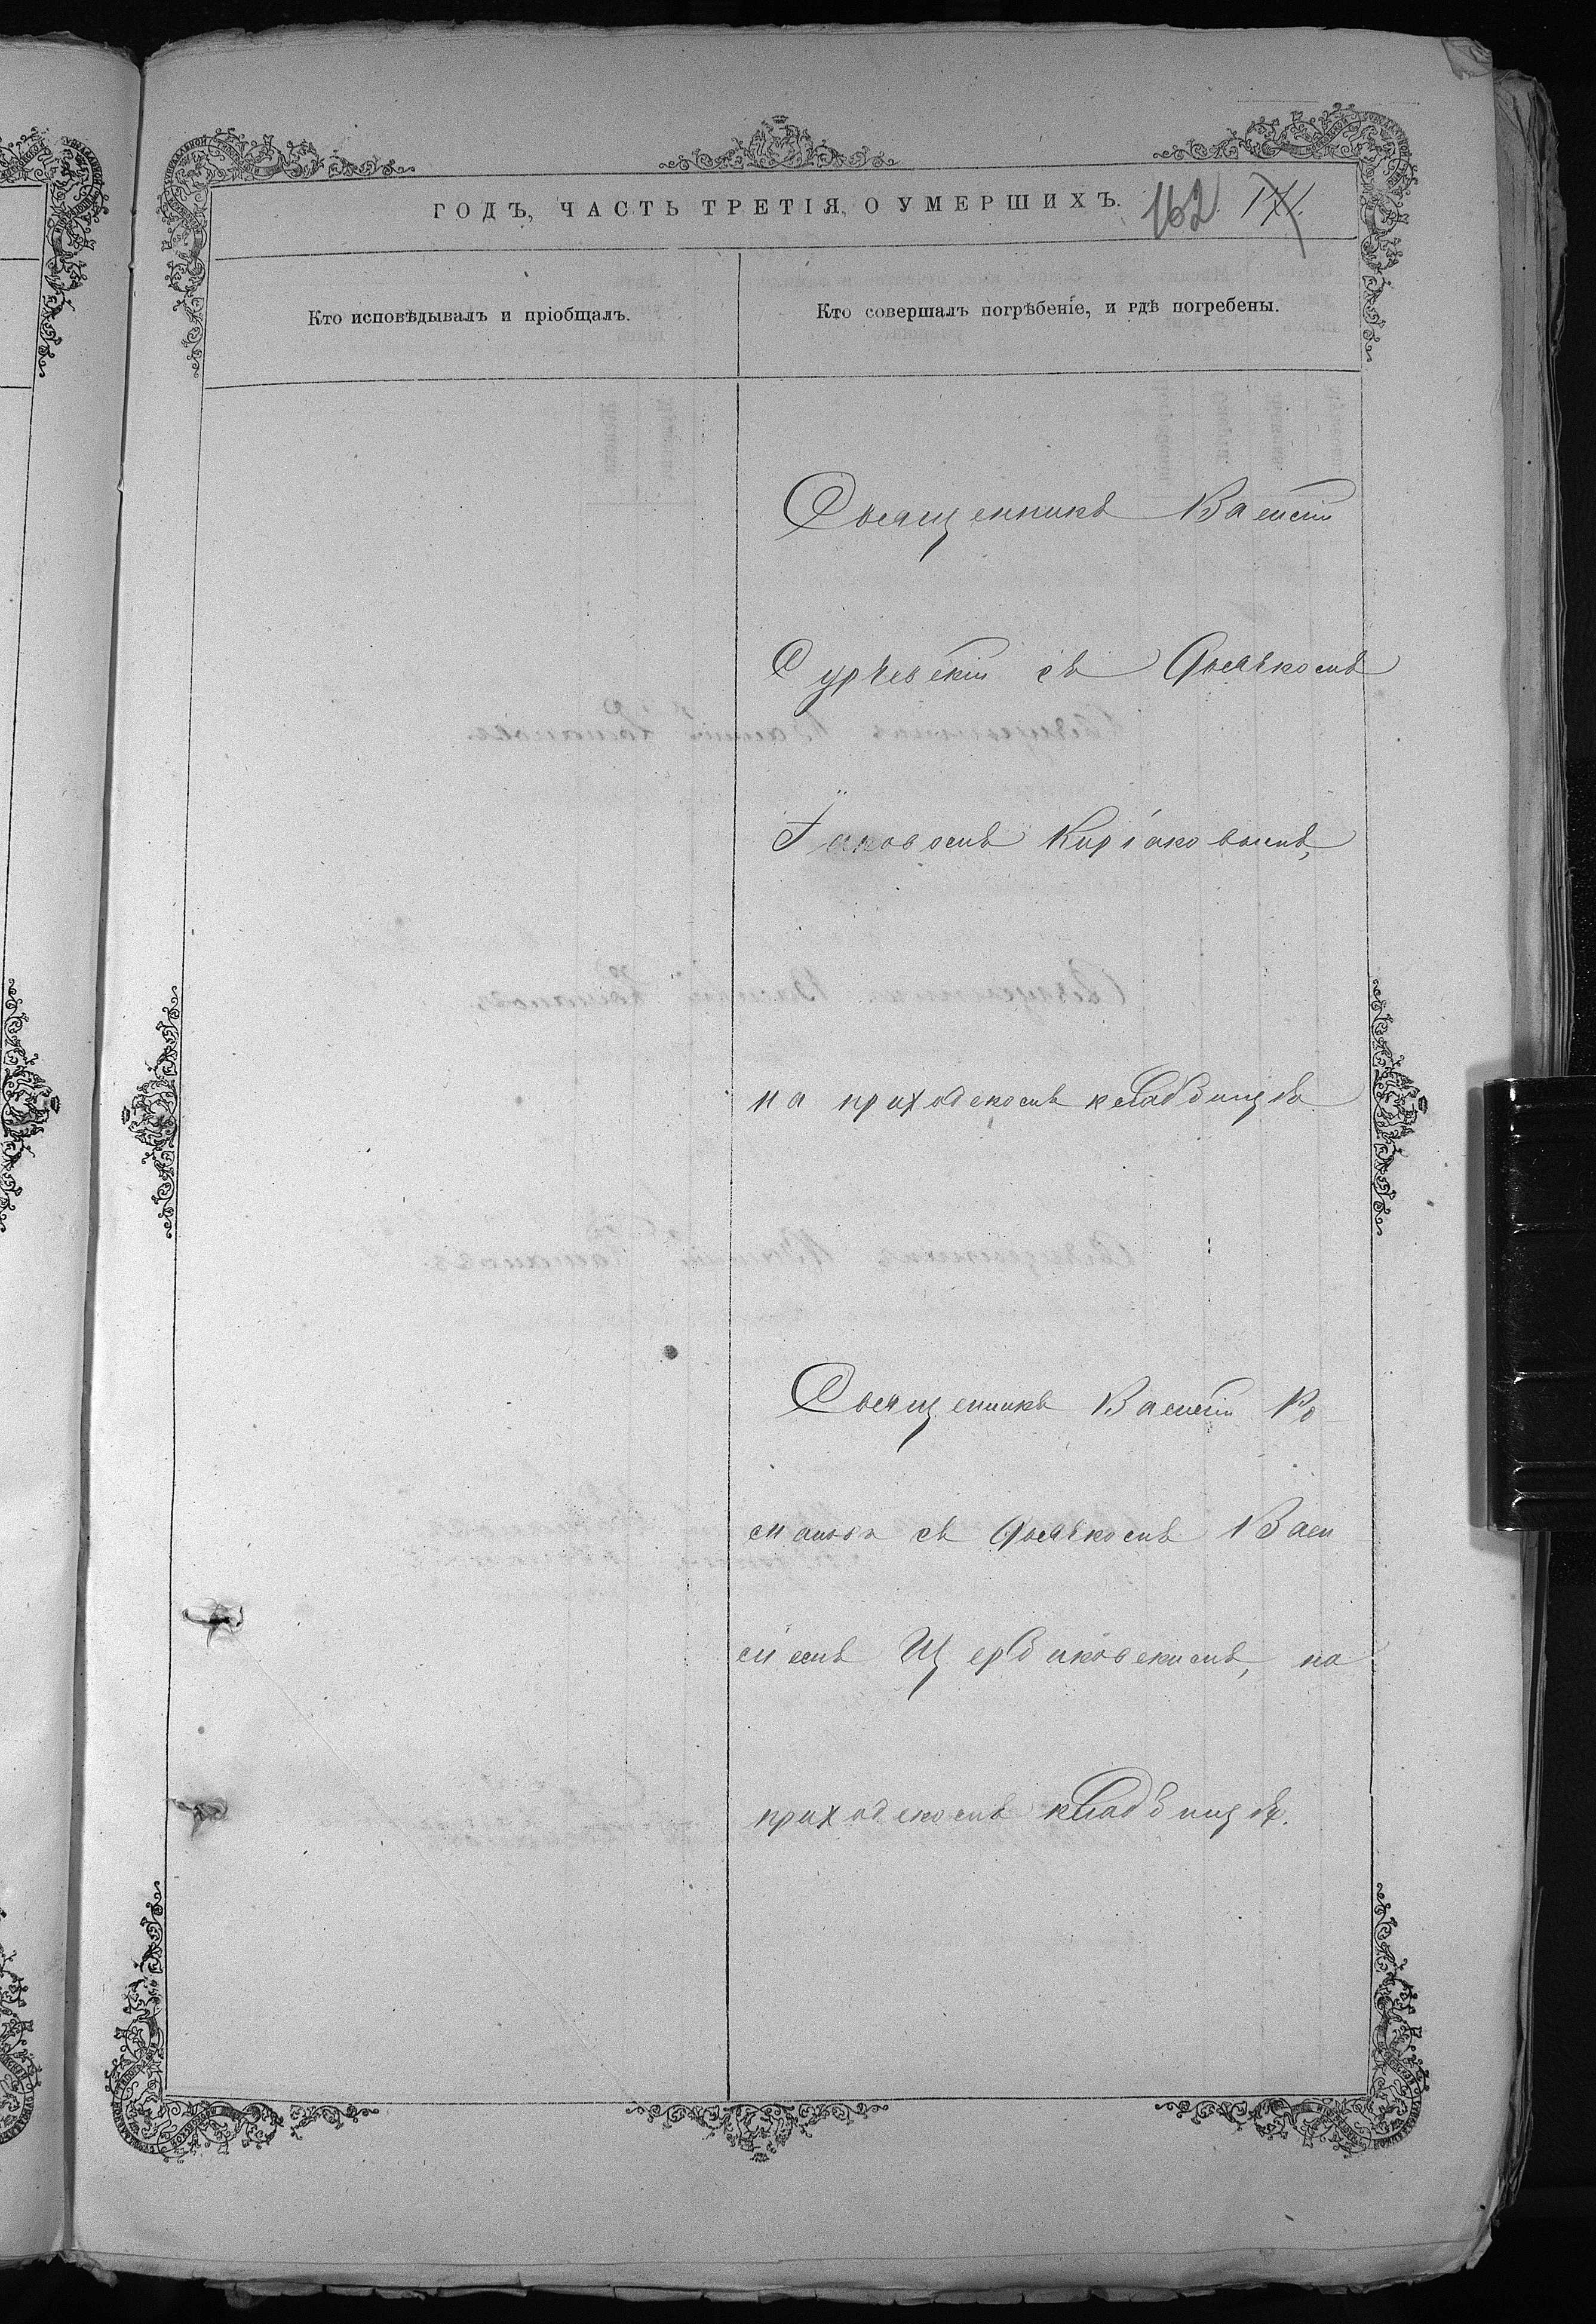 ГОДЪ, ЧАСТЬ ТРЕТІЯ, О УМЕРШИХЪ.
162
Кто исповѣдывалъ и пріобщалъ.
Кто совершалъ погрѣбеніе, и гдѣ погребены.
Священникъ Василій
съ Дьячкомъ
Іаковомъ Киріаковымъ,
на приходскомъ кладбищѣ
Священникъ Василій Ро
мановъ съ Дьячкомъ Васи
ліемъ Щербаковскимъ, на
приходскомъ кладбищѣ.